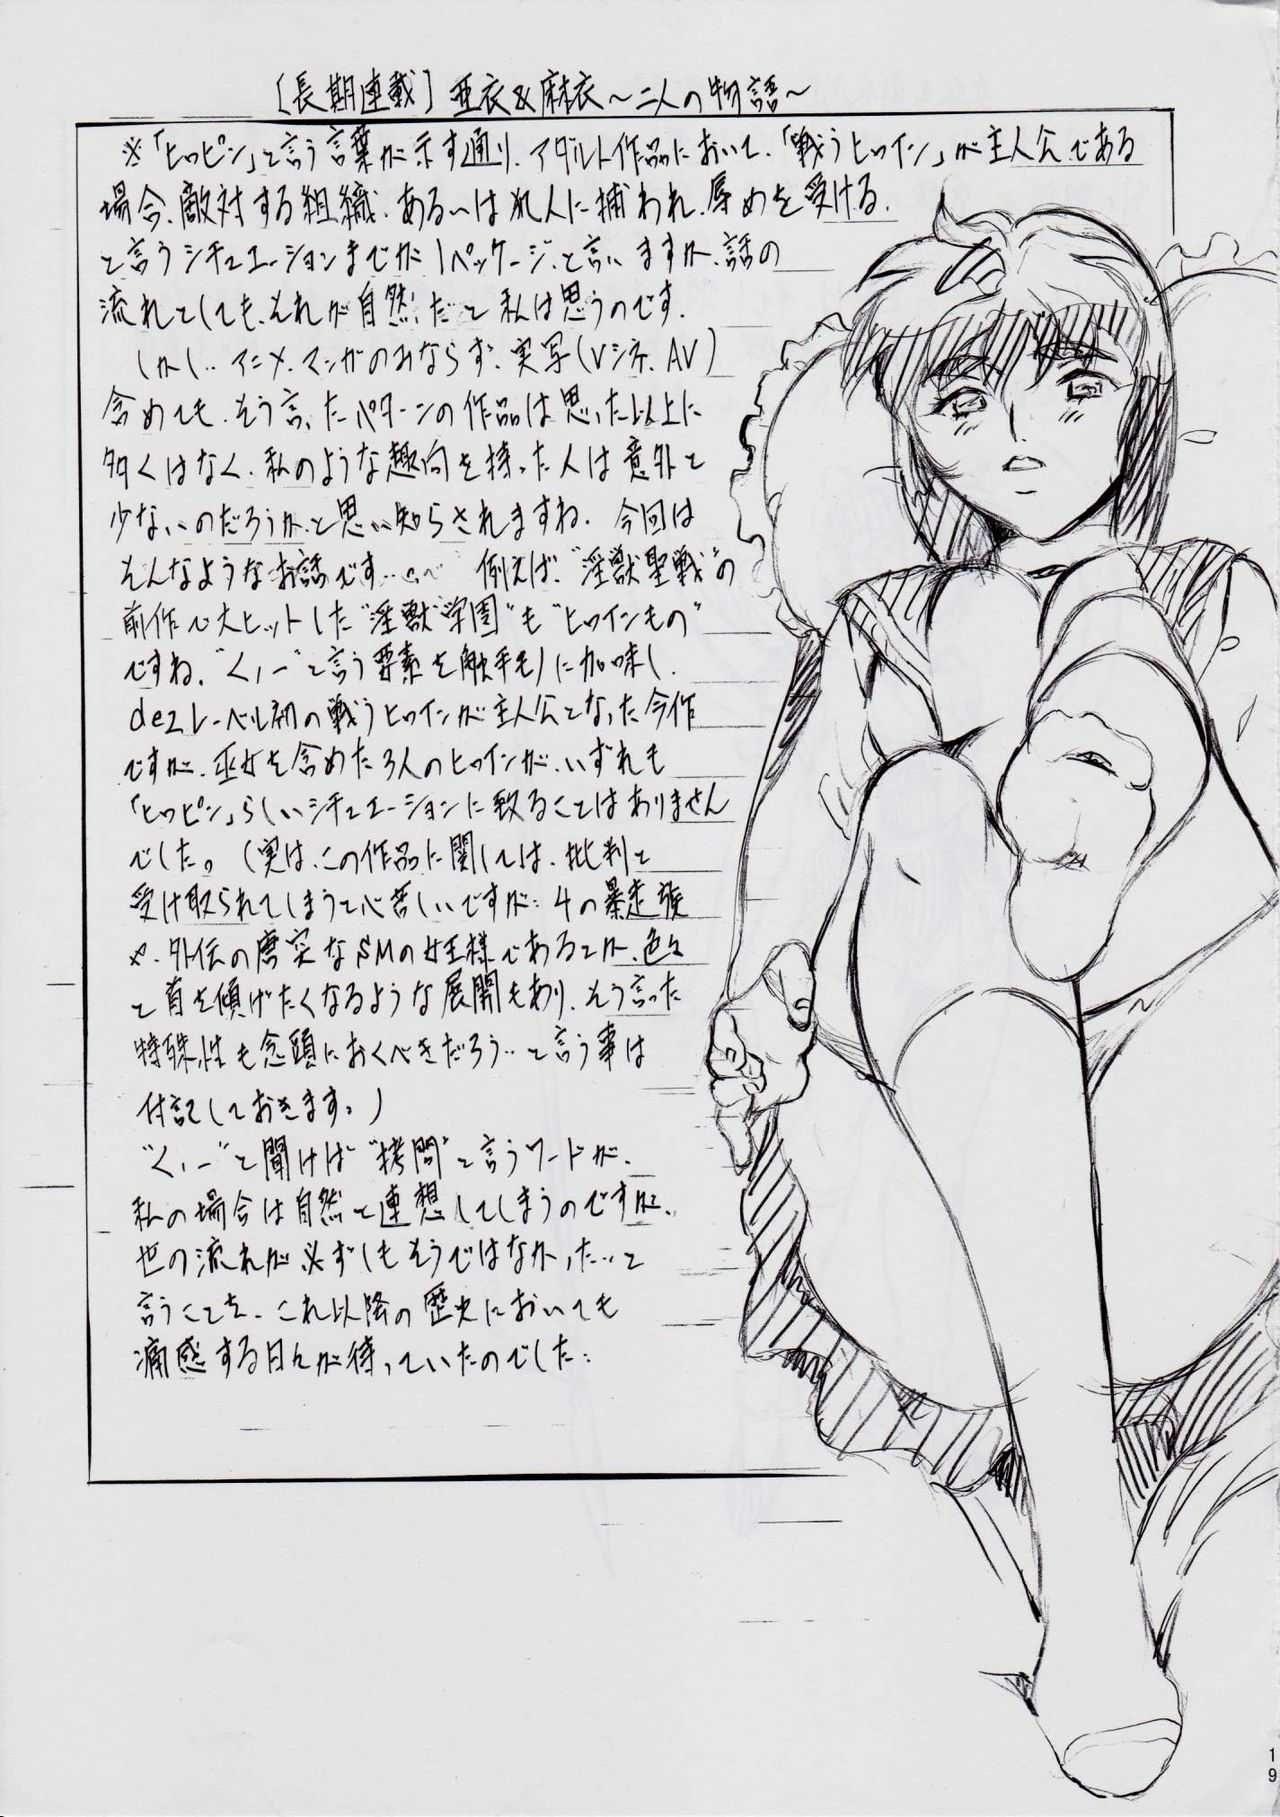 ［長期連載］亜衣&麻衣～二人の物語～
※「ヒロピン」と言う言葉が示す通り、アダルト作品において、「戦うヒロイン」が主人公である
場合、敵対する組織、あるいは犯人に捕われ、辱めを受ける、
と言うシチュエーションまでが1パッケージ、と言いますか、話の
流れとしても、それが自然だと私は思うのです。
しかし‥アニメ、マンガのみならず、実写(Vシネ、AV)
含めても、そう言ったパターンの作品は思った以上に
多くはなく、私のような趣向を持った人は意外と
少ないのだろうか、と思い知らされますね。今回は
そんなようなお話です‥ 例えば、"淫獣聖戦"の
前作で大ヒットした"淫獣学園"も"ヒロインもの"
ですね。"くノ一"と言う要素を触手モノに加味し、
dezレーベル初の戦うヒロインが主人公となった今作
ですが、巫女を含めた3人のヒロインが、いずれも
「ヒロピン」らしいシチュエーションに致ることはありません
でした。(実は、この作品に関しては、批判と
受け取られてしまうと心苦しいですが‥4の暴走族
や、外伝の唐突なSMの女王様であるとか、色々
と首を傾げたくなるような展開もあり、そう言った
特殊性も念頭におくべきだろう‥と言う事は
付記しておきます。)
"くノ一"と聞けば"拷問"と言うワードが、
私の場合は自然と連想してしまうのですが、
世の流れが必ずしもそうではなかった‥と
言うことを、これ以降の歴史においても
痛感する日々が待っていたのでした‥
19